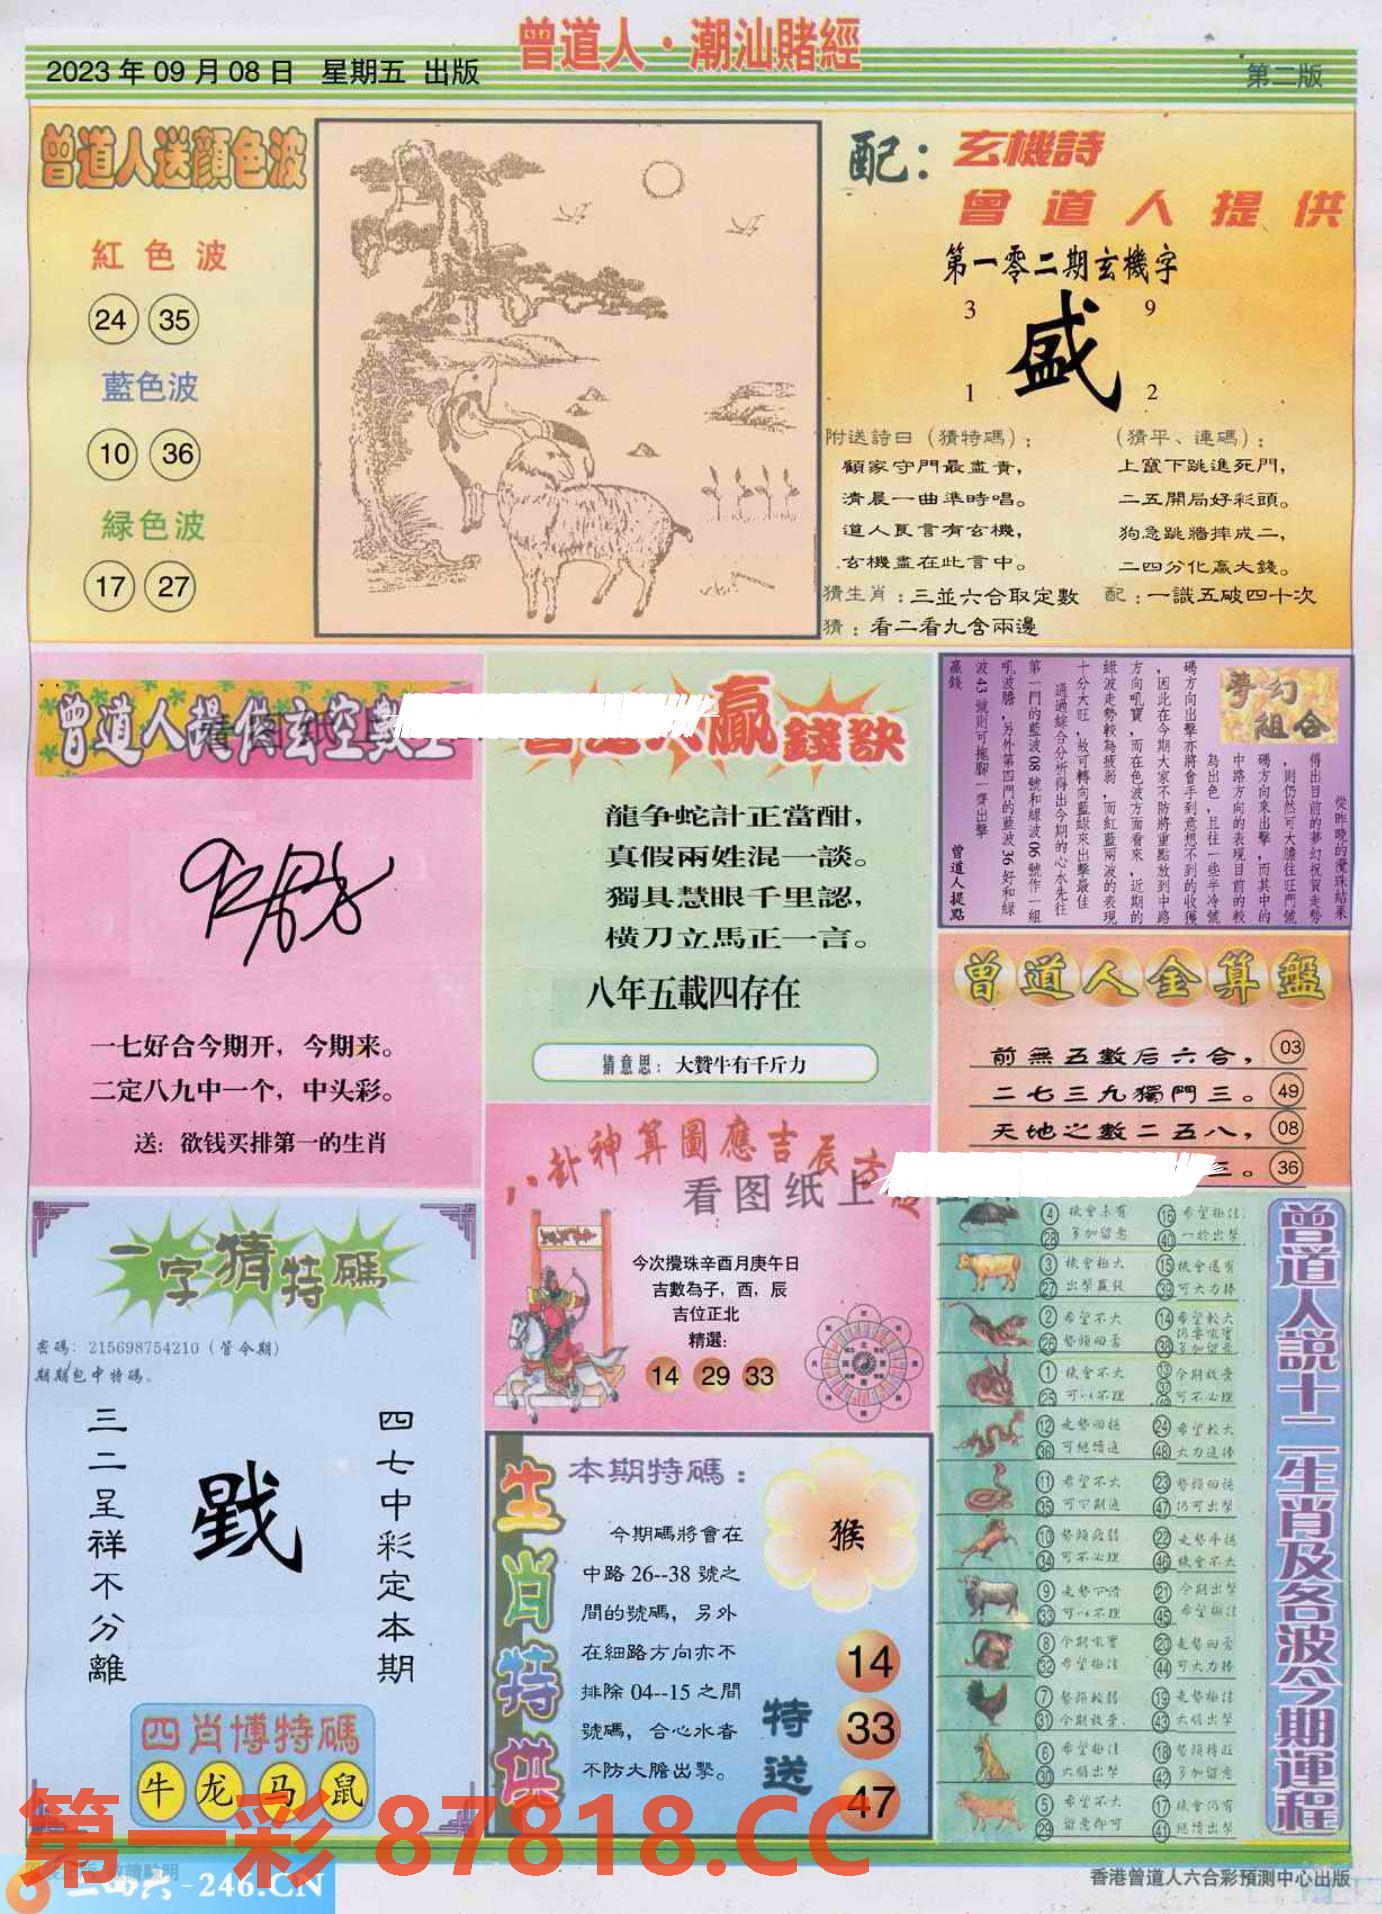 曾道人·潮汕賭經
2023年09月08日 星期五 出版
第二版
曾道人送顏色波
紅色波
24 35
藍色波
10 36
綠色波
17 27
配：玄機詩
曾道人提供
第一零二期玄機字
3 9
盛
1 2
附送詩曰（猜特碼）：
顧家守門最盡責，
清晨一曲準時唱。
道人良言有玄機，
玄機盡在此言中。
猜生肖：三並六合取定數
猜：看二看九含兩邊
（猜平、連碼）：
上竄下跳進死門，
二五開局好彩頭。
狗急跳牆摔成二，
二四分化贏大錢。
配：一識五破四十次
曾道人提供玄空數
一七好合今期开，今期来。
二定八九中一个，中头彩。
送：欲钱买排第一的生肖
贏錢訣
龍争蛇計正當酣，
真假兩姓混一談。
獨具慧眼千里認，
橫刀立馬正一言。
八年五載四存在
猜意思：大贊牛有千斤力
夢幻組合
從昨晚的攪珠結果
得出目前的夢幻祝賀走勢
，則仍然可大膽往旺門號
碼方向來出擊，而其中的
中路方向的表現目前的較
為出色，且往一些半冷號
碼方向出擊亦將會手到意想不到的收獲
，因此在今期大家不防將重點放到中路
方向吼寶，而在色波方面看來，近期的
綠波走勢較為疲弱，而紅藍兩波的表現
十分大旺，故可轉向藍綠來出擊最佳
通過綜合分析得出今期的心水先往
第一門的藍波08號和綠波06號作一組
吼波膽，另外第四門的藍波36好和綠
波43號則可拖腳一齊出擊
贏錢
曾道人提點
曾道人金算盤
前無五數后六合， 03
二七三九獨門三。 49
天地之數二五八， 08
三。 36
八卦神算圖應吉辰方位
看图纸上
今次攪珠辛酉月庚午日
吉數為子，酉，辰
吉位正北
精選：
14 29 33
一字猜特碼
密碼：215698754210（管今期）
期期包中特碼。
四七中彩定本期
戥
三二呈祥不分離
四肖博特碼
牛 龙 马 鼠
生肖特供
本期特碼：
猴
今期碼將會在
中路26--38號之
間的號碼，另外
在細路方向亦不
排除04--15之間
號碼，合心水者
不防大膽出擊。
特送
14
33
47
曾道人説十二生肖及各波今期運程
4 機會未有 16 希望極佳
28 多加留意 40 一於出擊
3 機會極大 15 機會還有
27 出擊贏錢 39 可大力捧
2 希望不大 14 希望較大
26 勢頭回落 38
1 機會不大 13 今期放棄
25 可以不理 可不必理
12 走勢回穩 24 希望較大
36 可繼續追 48 大力追捧
11 希望不大 23 勢頭回穩
35 47 仍可出擊
10 勢頭疲弱 22 走勢平穩
34 可不必理 46 機會不大
9 走勢下滑 21 今期出擊
33 可以不理 45 希望極佳
8 今期吼實 20 走勢回落
32 希望極佳 44 可大力捧
7 勢頭較弱 19 走勢極佳
31 今期放棄 43 大膽出擊
6 希望極佳 18 勢頭轉旺
30 大膽出擊 42 多加留意
5 希望不大 17 機會仍有
29 留意即可 41 繼續出擊
第一彩 87818.CC
二四六-246.CN
香港曾道人六合彩預測中心出版